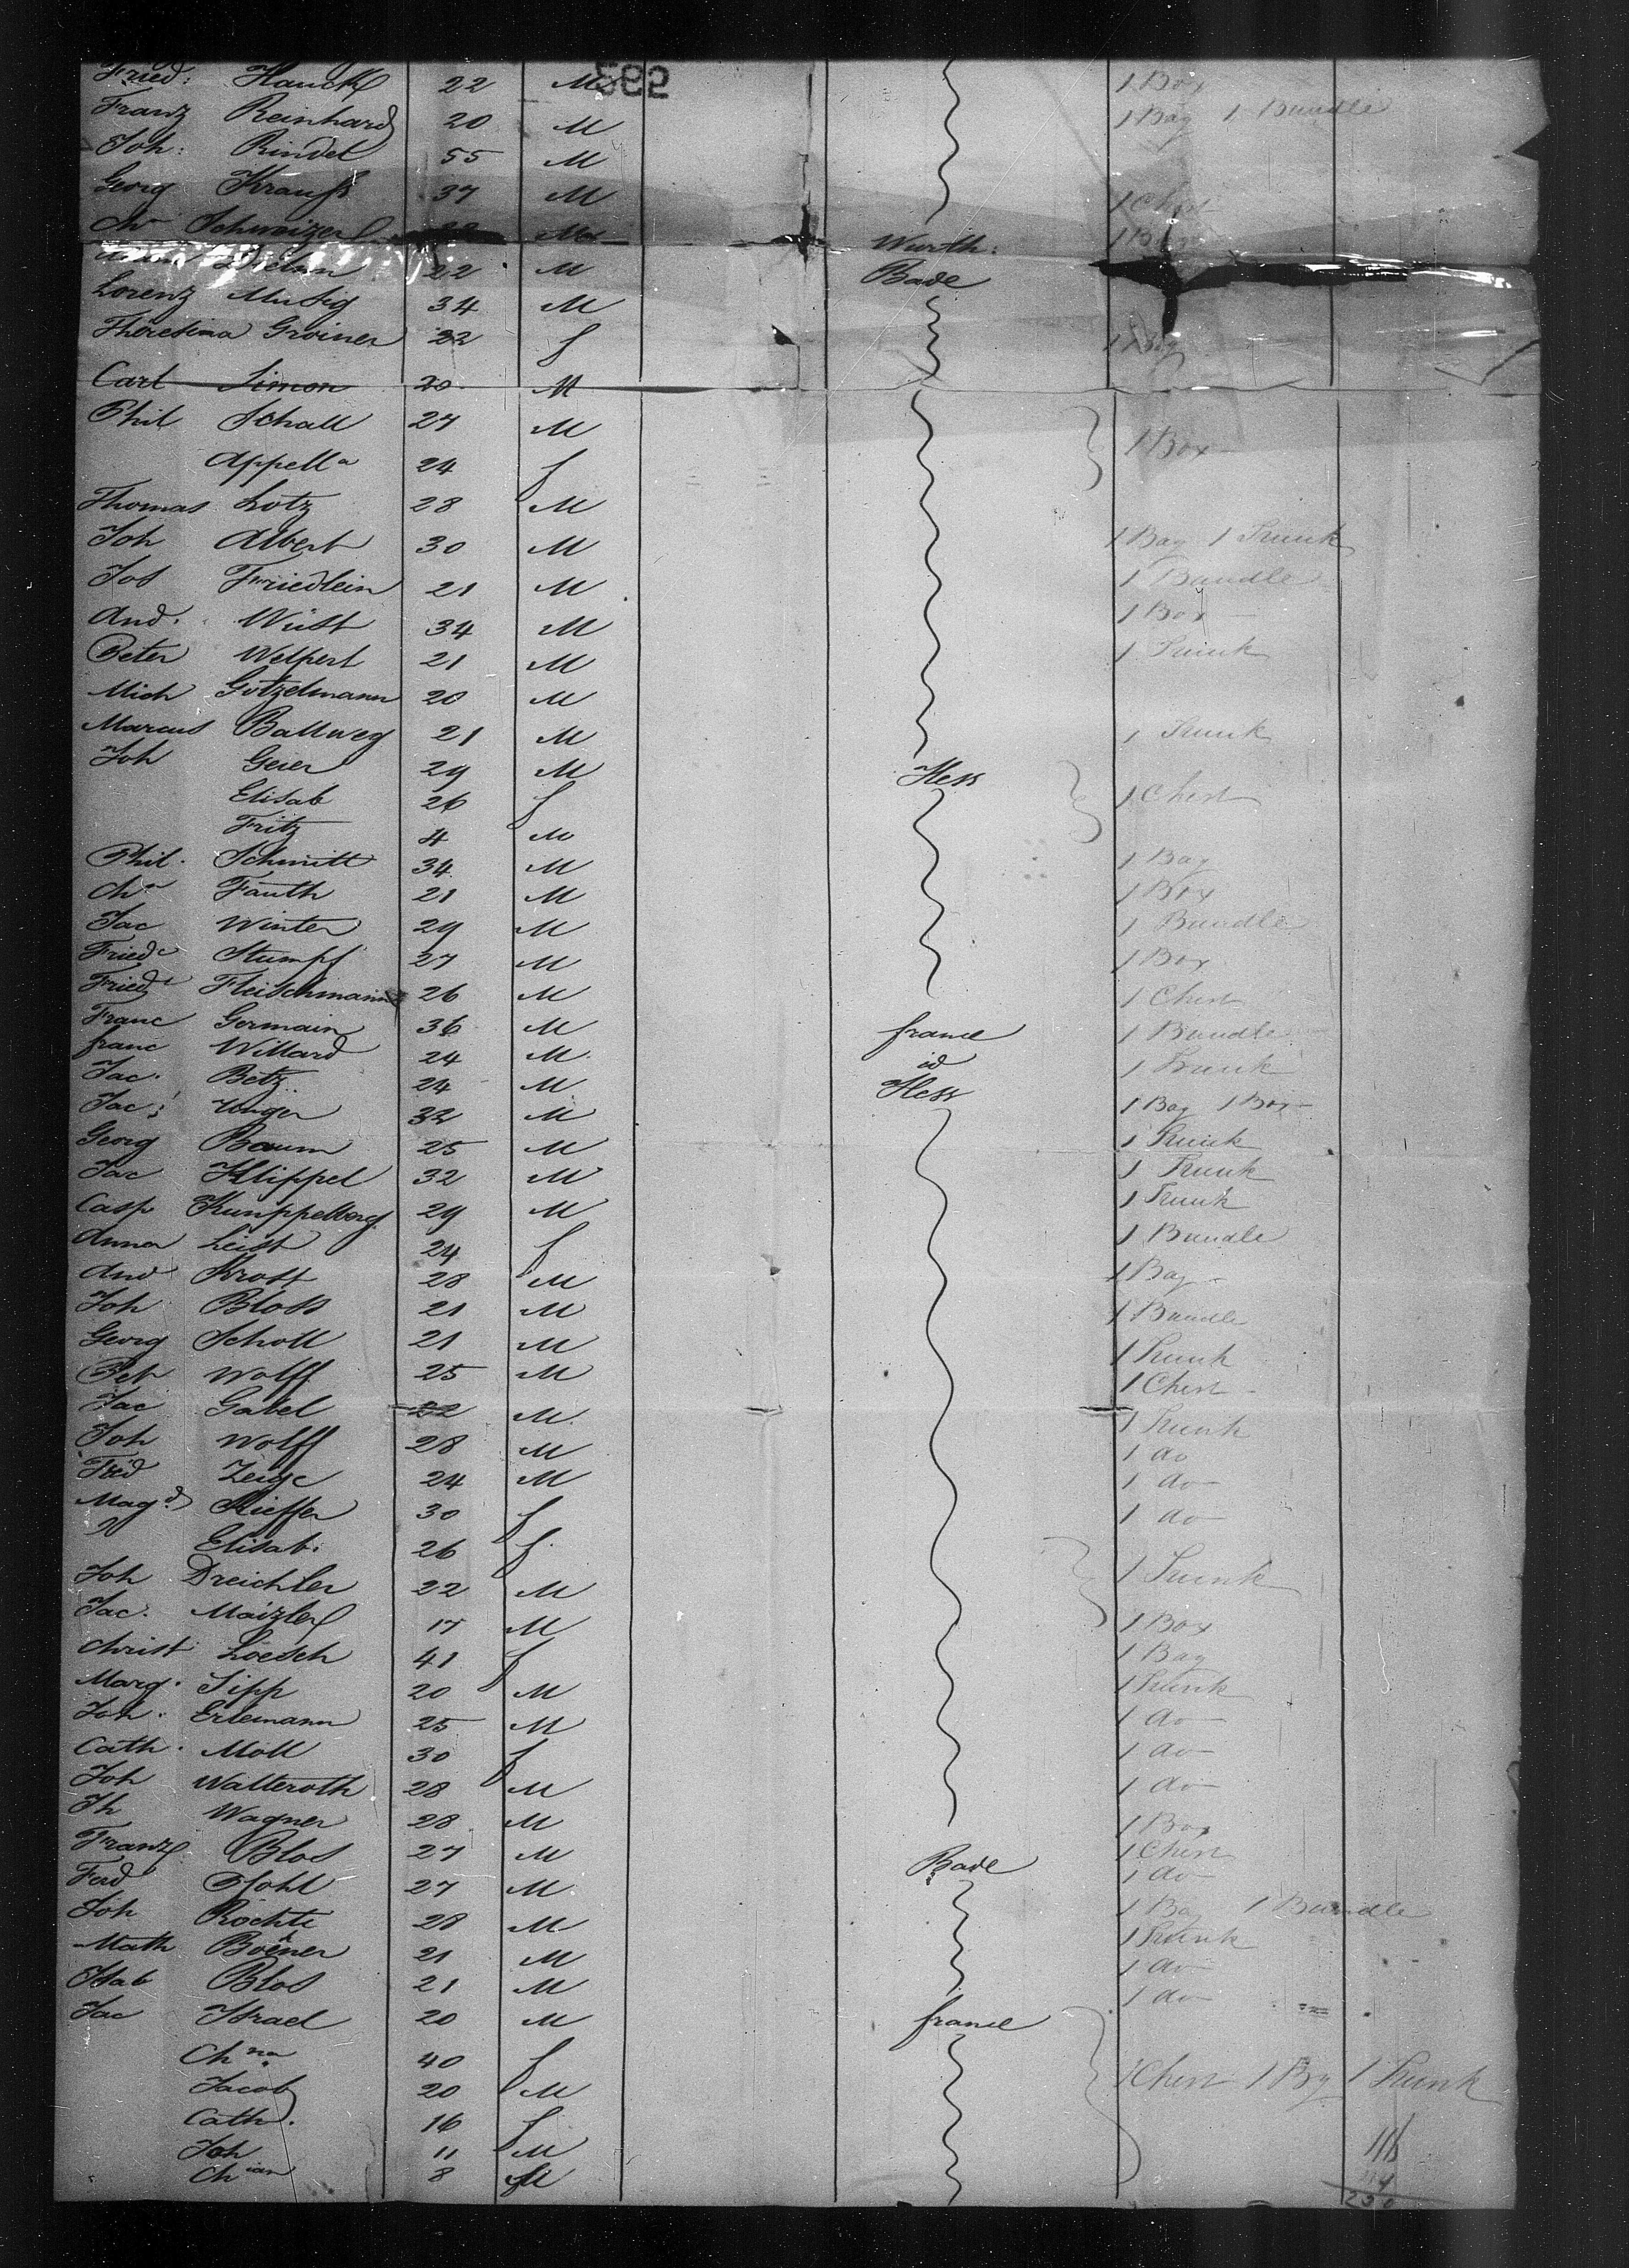 Fried: Hauck 22 M 1 Box
592
Franz Reinhard 20 M 1 Bag 1 Bundle
Joh: Rindel 55 M
Georg Krauß 37 M 1 Chest
Chr Schweizer M Wurth:
22 M Bade
Lorenz Musig 34 M
Theresina Groiner 22 f 1 Bag
Carl Simon 20 M
Phil Schall 27 M 1 Box
Appella 24 f
Thomas Lotz 28 M
Joh Albert 30 M 1 Bag 1 Trunk
Jos Friedlein 21 M 1 Bundle
And. Wüst 34 M 1 Box
Peter Welpert 21 M 1 Trunk
Mich Götzelmann 20 M
Marcus Ballweg 21 M 1 Trunk
Joh Geier 29 M Hess
Elisab 26 f 1 Chest
Fritz 4 M
Phil. Schmitt 34 M 1 Bag
Chr Fauth 21 M 1 Box
Jac Winter 29 M 1 Bundle
Friedc Stumpf 27 M 1 Box
Friedc Fleischmann 26 M 1 Chest
Franc Germain 36 M france 1 Bundle
franc Willard 24 M id 1 Trunk
Jac. Betz 24 M Hess
Jac: Unger 32 M 1 Bag 1 Box
Georg Baum 25 M 1 Trunk
Jac Klippel 32 M 1 Trunk
Casp Kumppelberg 29 M 1 Trunk
Anna Leist 24 f 1 Bundle
And Krost 28 M 1 Bag
Joh Bloss 21 M 1 Bundle
Georg Scholl 21 M 1 Trunk
Pet Wolff 25 M 1 Chest
Jac Gabel 22 M 1 Trunk
Joh Wolff 28 M 1 do
Fried Zeige 24 M 1 do
Magd Kieffer 30 f 1 do
Elisab: 26 f
Joh Dreichler 22 M 1 Trunk
Jac. Maizler 17 M 1 Box
Christ Loesch 41 f 1 Bag
Marg. Sipp 20 M 1 Trunk
Joh. Erlemann 25 M 1 do
Cath. Moll 30 f 1 do
Joh Walteroth 28 M 1 do
Th Wagner 28 M 1 Box
Franz Blos 27 M Bade 1 Chest
Ferd Stohl 27 M 1 do
Joh Rochte 28 M 1 Bag 1 Bundle
Math Boener 21 M 1 Trunk
Isab Blos 21 M 1 do
Jac Israel 20 M france 1 do
Chna 40 f
Jacob 20 M 1 Chest 1 Bag 1 Trunk
Cath. 16 f
Joh 11 M
Chian 8 M